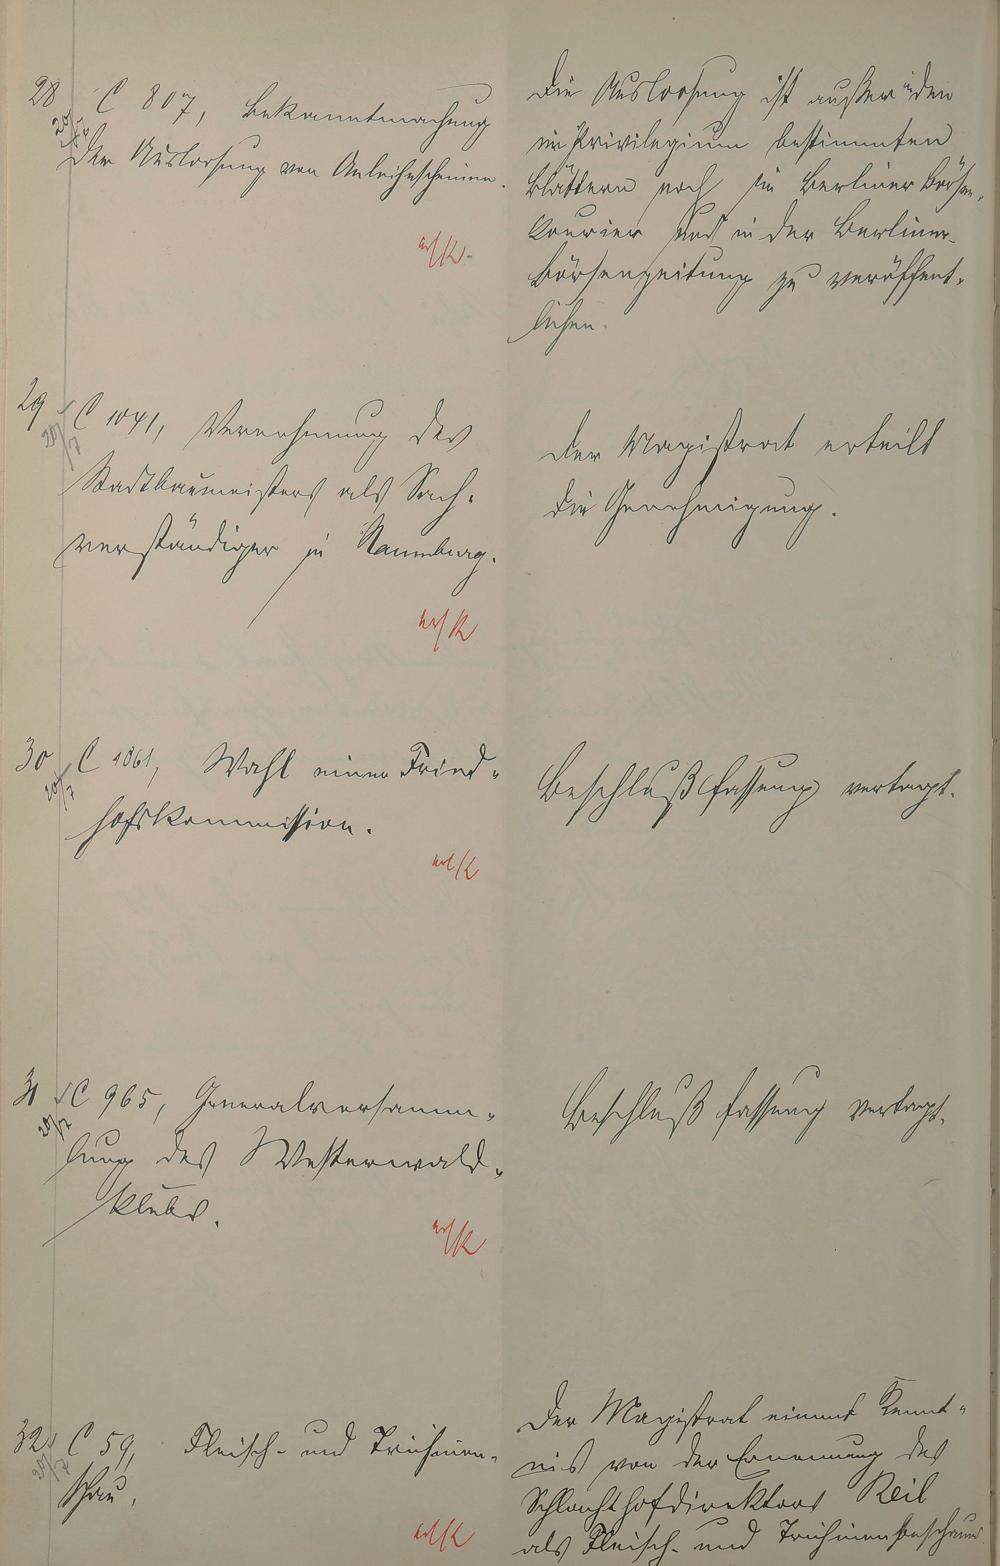 28
20/6
C 807, Bekanntmachung
der Auslosung von Anleihescheinen.
Die Auslosung ist außer in den
im Privilegium bestimmten
Blättern noch im Berliner Börsen-
Courier und in der Berliner
Börsenzeitung zu veröffent-
lichen.
29
20/7
C 1041, Vernehmung des
Stadtbaumeisters als Sach-
verständiger in Naumburg.
Der Magistrat erteilt
die Genehmigung.
30
20/7
C 1061, Wahl einer Fried-
hofskommission.
Beschlußfassung vertagt.
31
20/7
C 965, Generalversamm-
lung des Westerwald-
klubs.
Beschlußfassung vertagt.
32
20/7
C 59, Fleisch- und Trichinen-
schau.
Der Magistrat nimmt Kennt-
nis von der Ernennung des
Schlachthofdirektors Keil
als Fleisch- und Trichinenbeschauer.